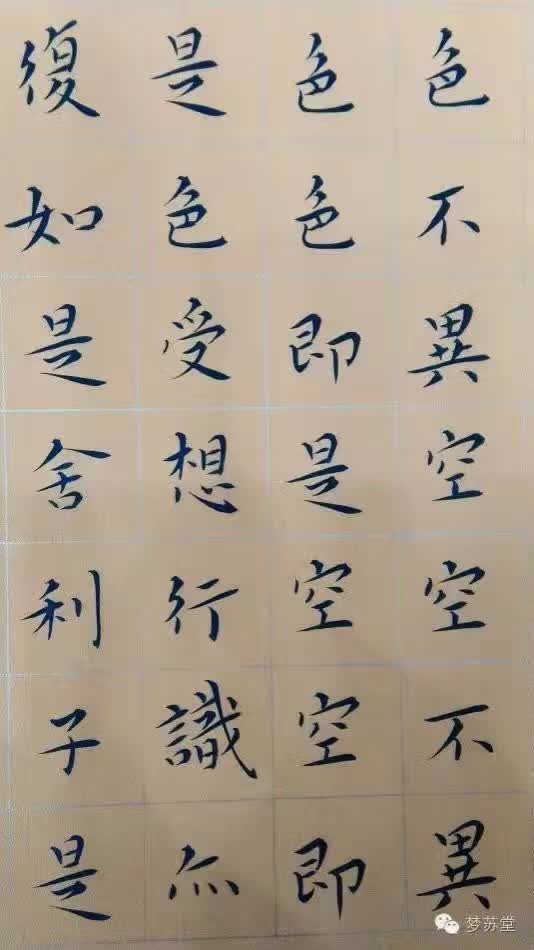 色不異空空不異
色色即是空空即
是色受想行識亦
復如是舍利子是
梦苏堂